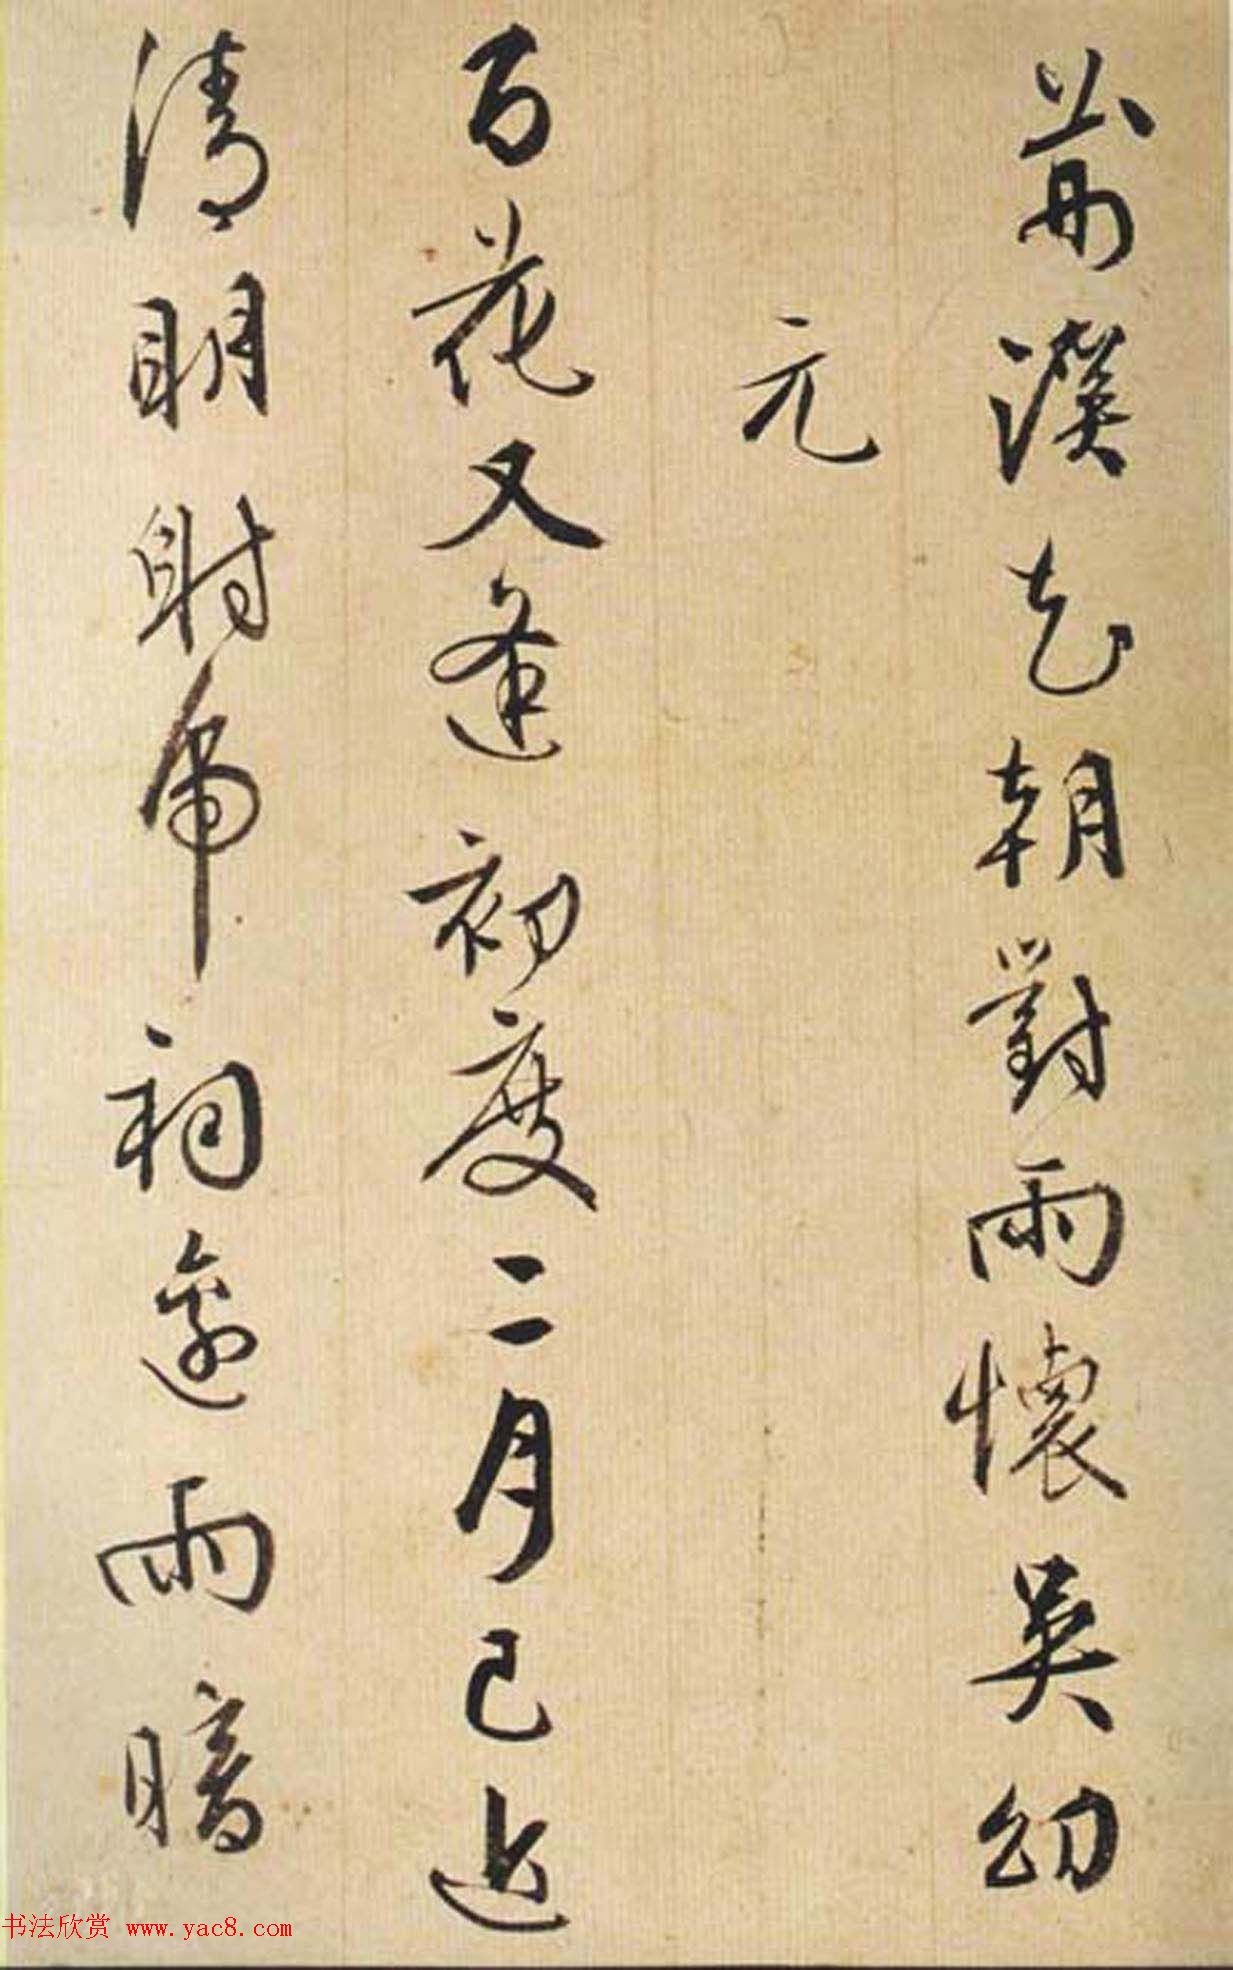 前溪花朝對雨懷吳幼
元
百花又逢初度二月已近
清明射虎祠邊雨暗
书法欣赏 www.yac8.com